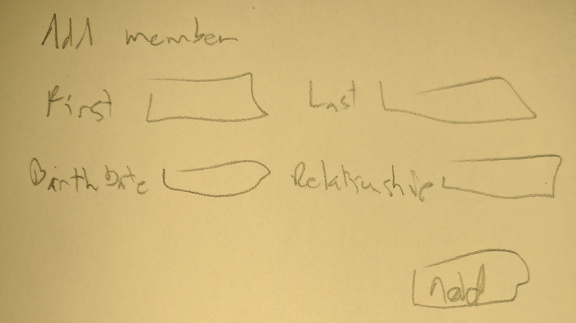 Add member
First Last
Birth Date Relationship
Add